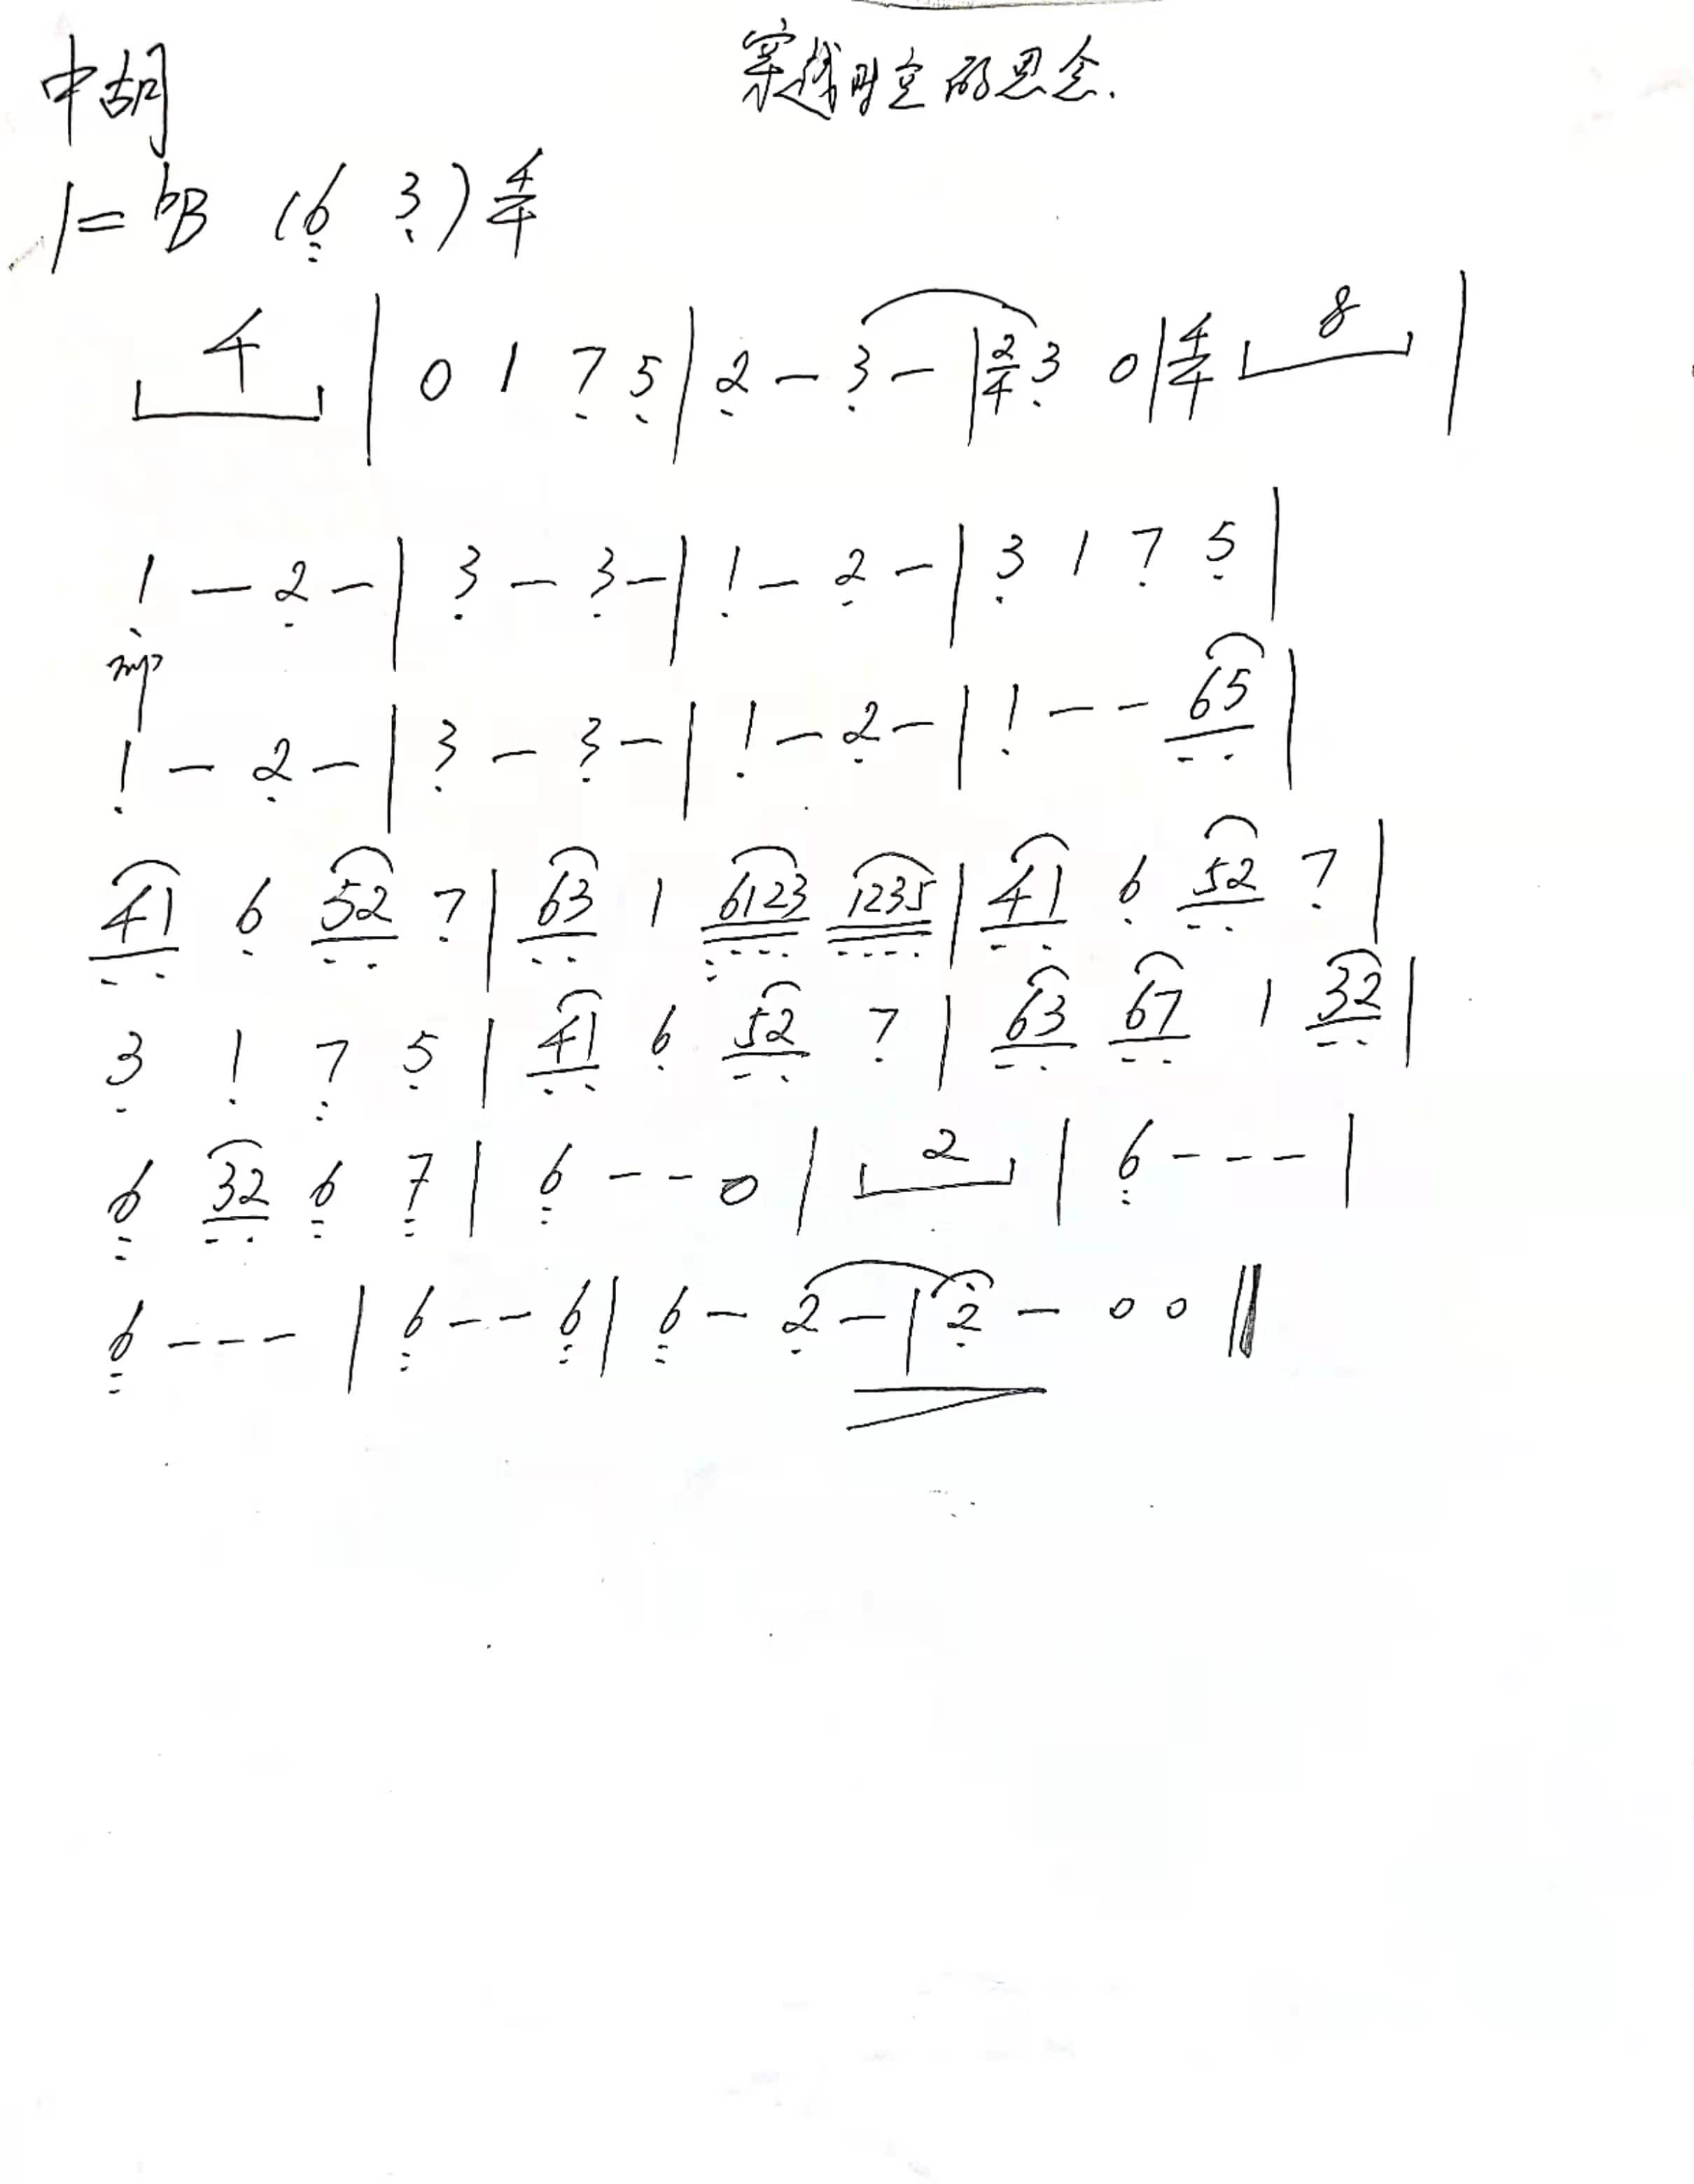 穿越时空的思念.
中胡
1=bB (6 3) 4/4
4 | 0 1 7 5 | 2 - 3 - | 2/4 3 0 | 4/4 8 |
1 - 2 - | 3 - 3 - | 1 - 2 - | 3 1 7 5 |
mp
1 - 2 - | 3 - 3 - | 1 - 2 - | 1 - - 65 |
41 6 52 7 | 63 1 6123 1235 | 41 6 52 7 |
3 1 7 5 | 41 6 52 7 | 63 67 1 32 |
6 32 6 7 | 6 - - 0 | 2 | 6 - - - |
6 - - - | 6 - - 6 | 6 - 2 - | 2 - 0 0 ||